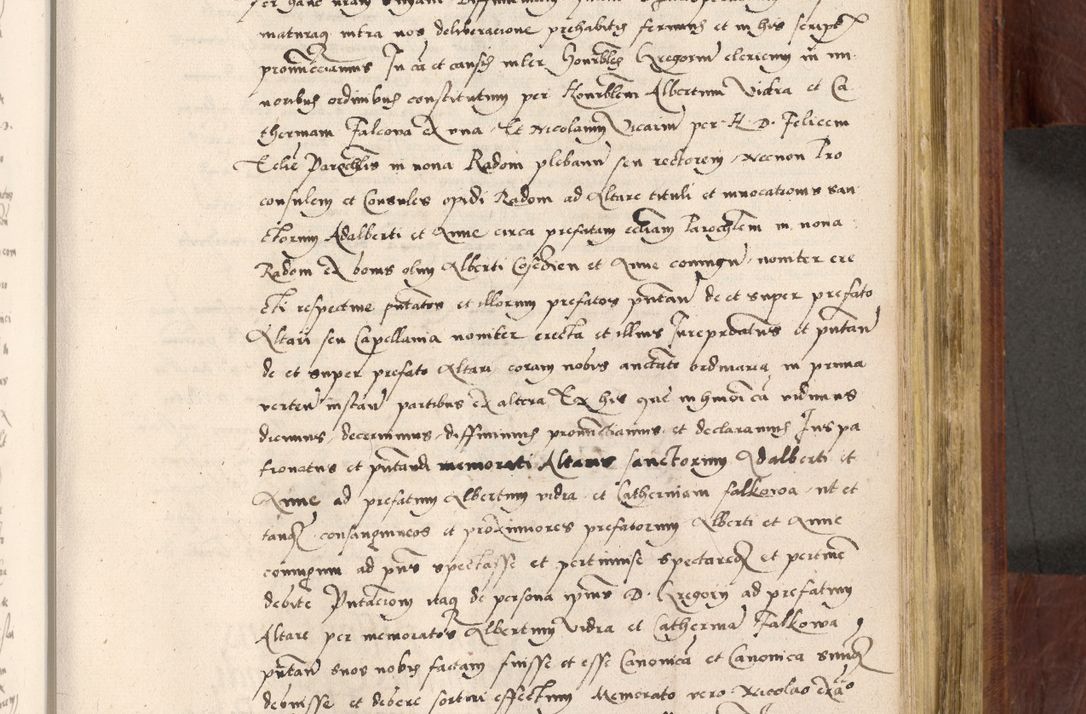 maturaq intra nos deliberacione prehabitis ferimus et in his scriptis
pronuncciamus In ca et causis inter Honrbles Gregorium clericum in mi
noribus ordinibus constitutum per Honrblem Albertum Vidra et Ca
therinam Falcova ex una Et Nicolaum Vicarium per H. D. Felicem
Eclie Parochlis in nova Radom plebanum seu rectorem Necnon Pro
consulem et Consules opidi Radom ad Altare tituli et invocationis san
ctorum Adalberti et Anne circa prefatam ecliam Parochlem in nova
Radom ex bonis olim Alberti et Anne coniugum noviter ere
cti respective pntatos et illorum prefatos pntan de et super prefato
Altari seu Capellania noviter erecta et illius Jurepatus et pntan
de et super prefato Altari coram nobis auctate ordinaria in prima
verten instan partibus ex altera Ex his que in hmoi ca vidimus
dicimus decernimus diffinimus pronuncciamus et declaramus Jus pa
tronatus et pntandi memorati Altaris sanctorum Adalberti et
Anne ad prefatum Albertum vidra et Catherinam falkowa ut et
tanq consanguineos et proximiores prefatorum Alberti et Anne
coniugum ad pns spectasse et pertinuisse spectareq et pertinere
debite Pntacionem itaq de persona ipsius D. Gregorii ad prefatum
Altare per memoratos Albertum Vidra et Catherina Falkowa
pntan suos nobis factam fuisse et esse Canonicam et Canonica suumq
debuisse et debere sortiri effectum Memorato vero Nicolao